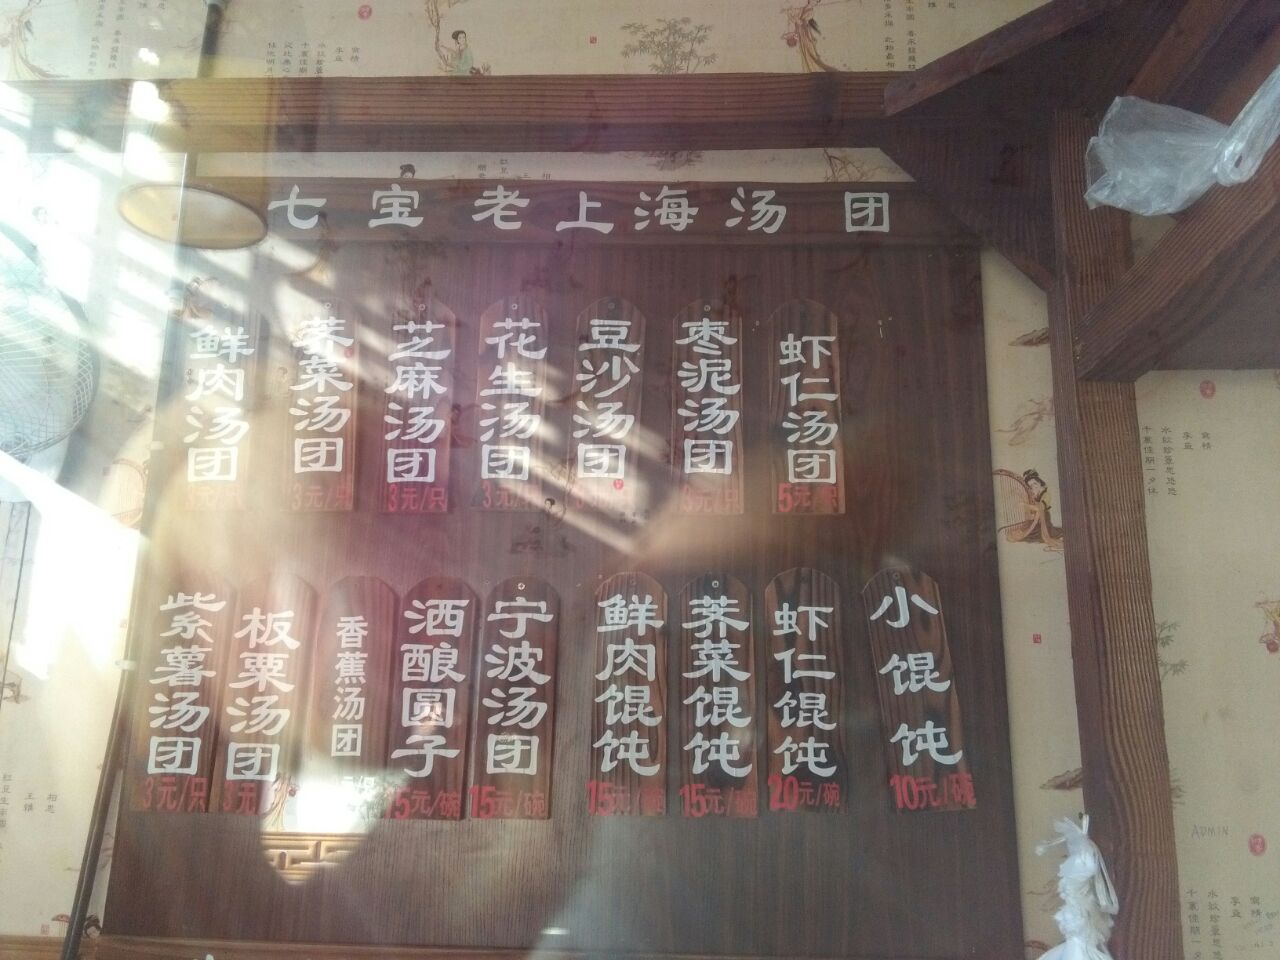 七宝老上海汤团
鲜肉汤团
3元/只
荠菜汤团
3元/只
芝麻汤团
3元/只
花生汤团
3元/只
豆沙汤团
枣泥汤团
3元/只
虾仁汤团
5元/只
紫薯汤团
3元/只
板栗汤团
3元
香蕉汤团
酒酿圆子
15元/碗
宁波汤团
15元/碗
鲜肉馄饨
15元/碗
荠菜馄饨
15元/碗
虾仁馄饨
20元/碗
小馄饨
10元/碗
ADMIN